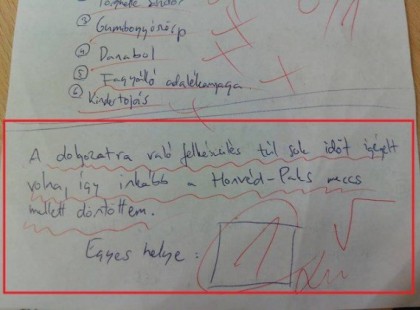 ③ Gumbogyószörp
④ Danabol
⑤ Fagyálló adalékanyaga
⑥ Kindertojás
A dolgozatra való felkészülés túl sok időt igényelt
volna, így inkább a Honvéd-Paks meccs
mellett döntöttem.
Egyes helye: 1